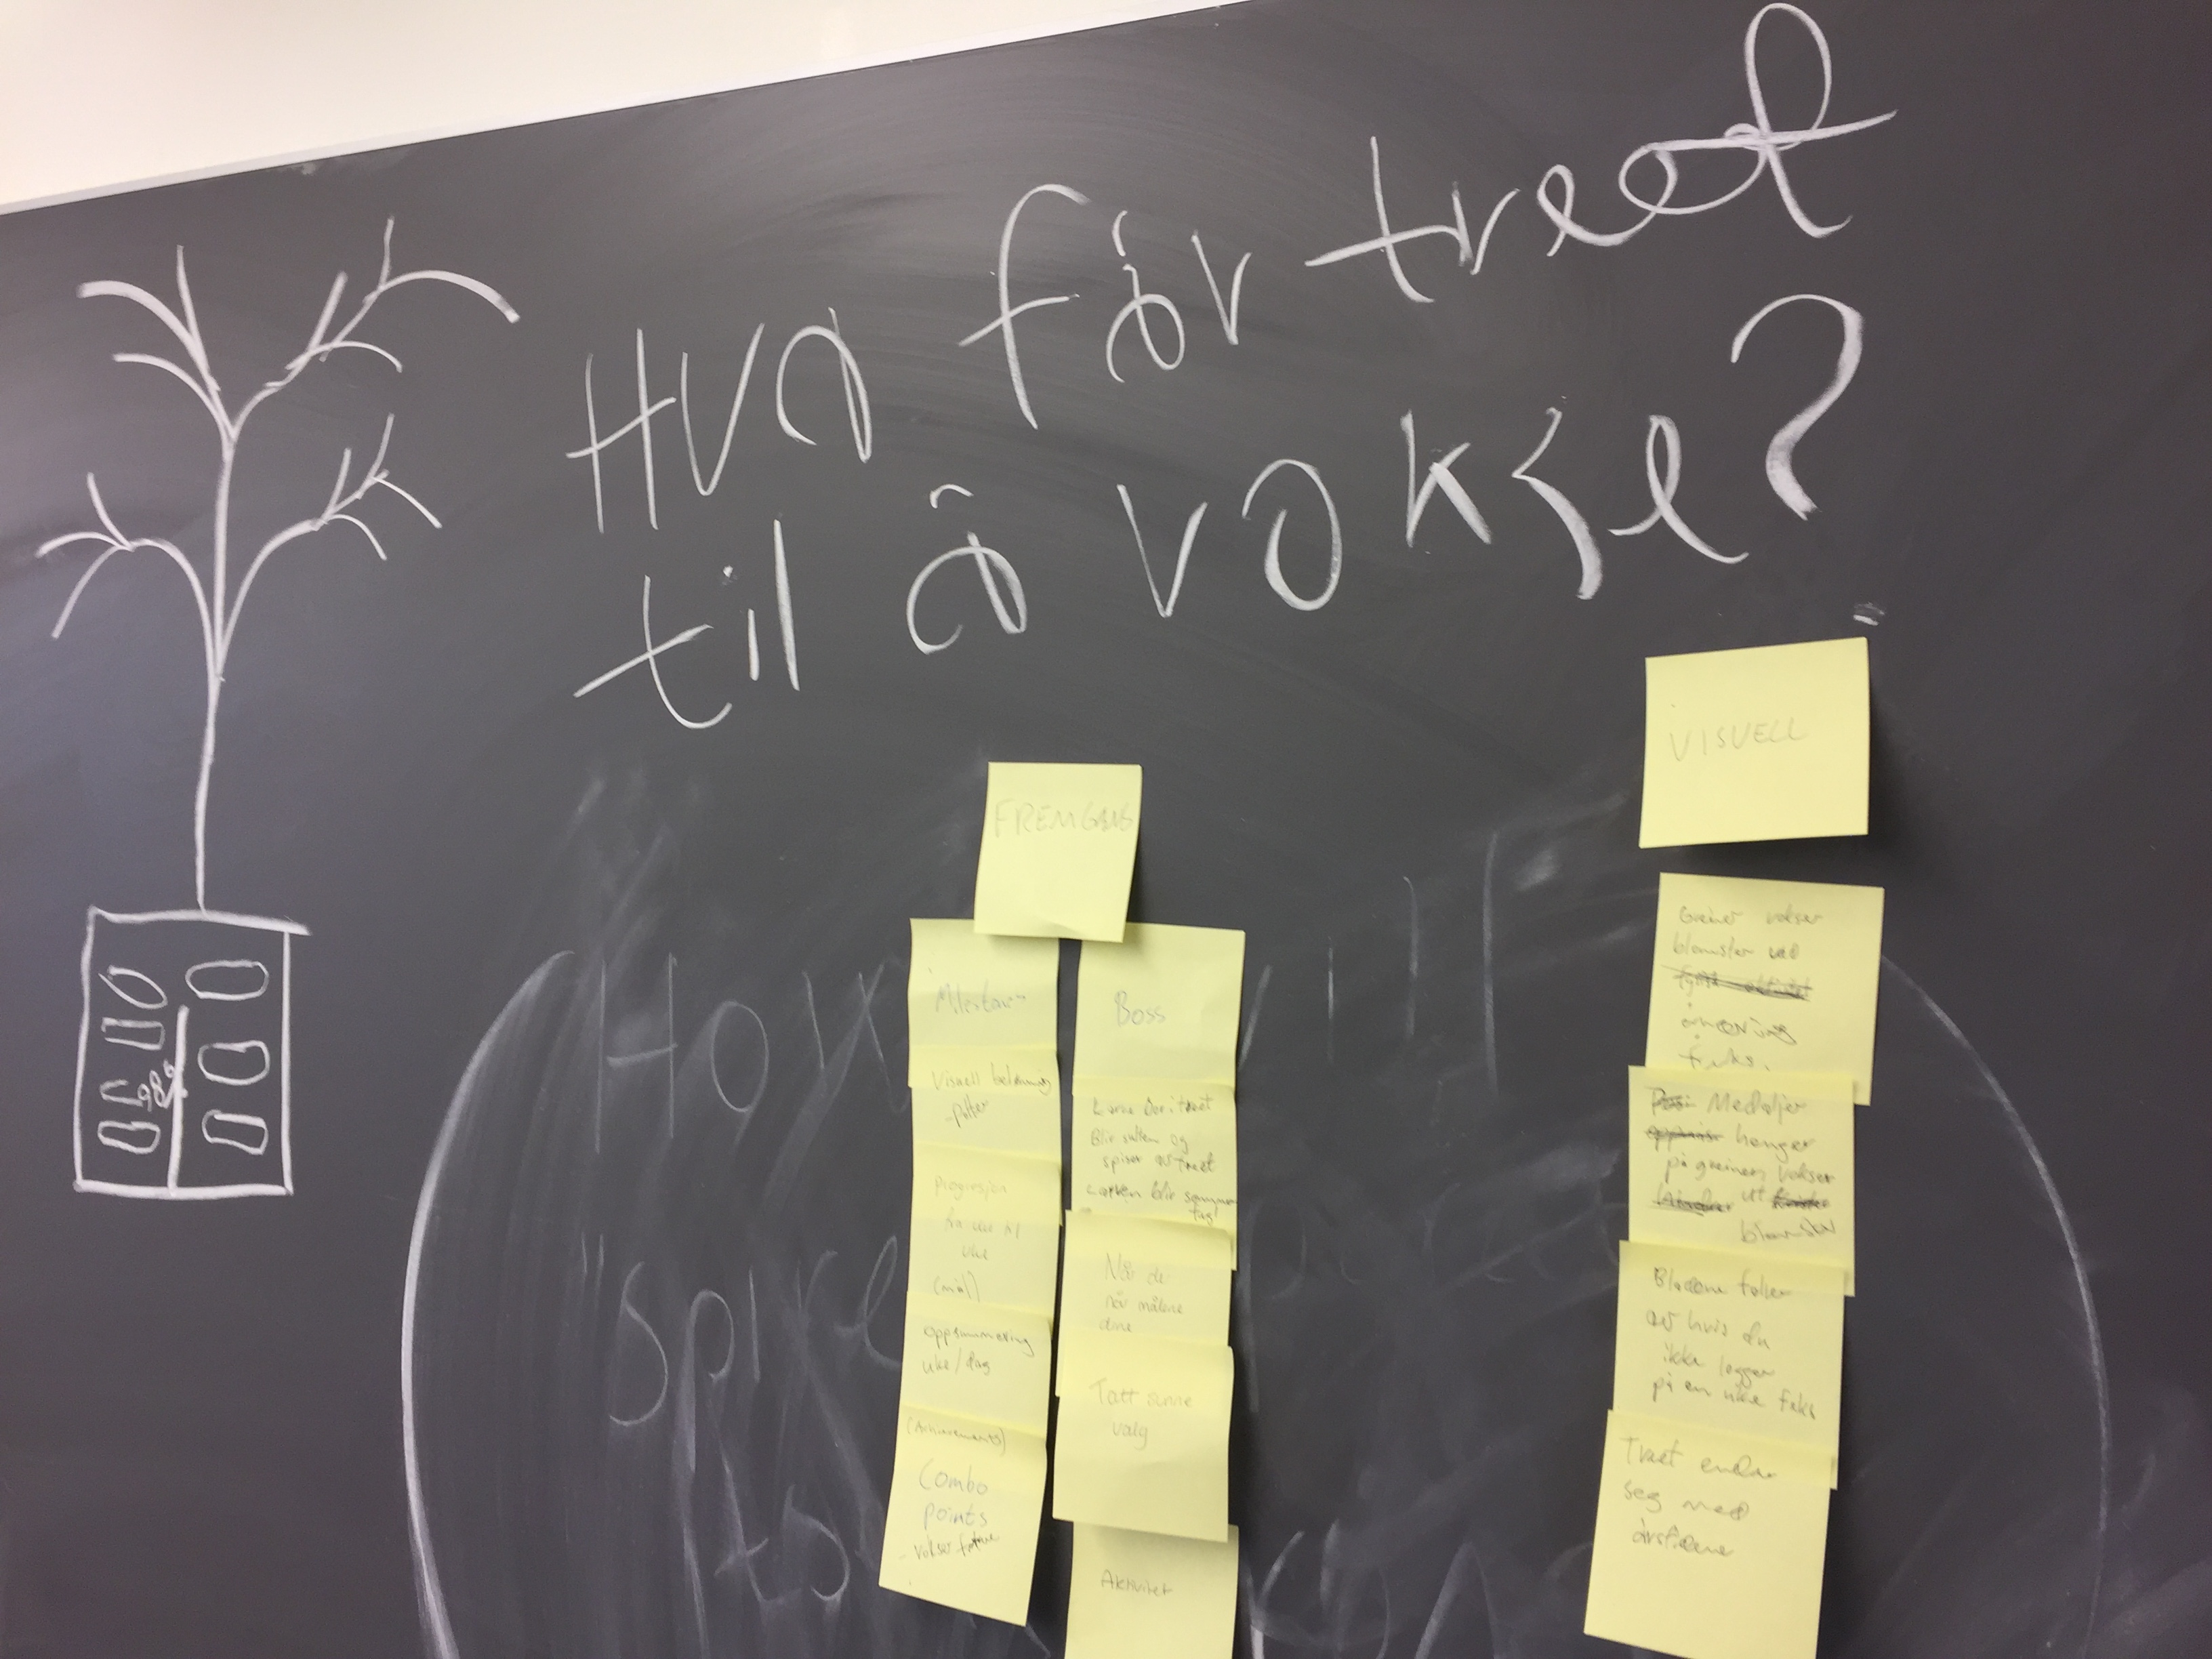 Hva får treet
til å vokse?
VISUELL
FREMGANG
Visuell belønning
Progresjon
fra uke til
uke
(mål)
Oppsummering
uke/dag
(Achievements)
Combo
points
Boss
Blir sulten og
spiser av treet
Larven blir sommer
fugl
Når du
når målene
dine
Tatt sunne
valg
Aktivitet
Greiner vokser
blomster ved
ernæring
f.eks.
Medaljer
henger
på greinen, vokser
ut
blomster
Bladene faller
av hvis du
ikke legger
på en uke f.eks
Treet endrer
seg med
årstidene
How
Spike